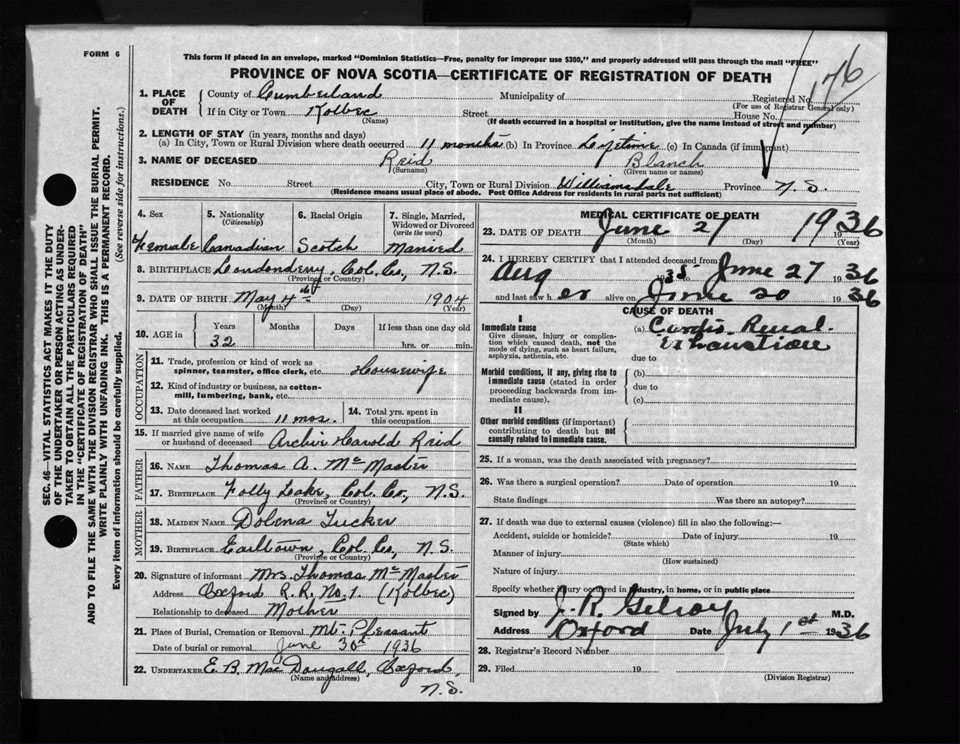 FORM 6
This form if placed in an envelope, marked "Dominion Statistics—Free, penalty for improper use $300," and properly addressed will pass through the mail "FREE"
PROVINCE OF NOVA SCOTIA—CERTIFICATE OF REGISTRATION OF DEATH
176
SEC. 46—VITAL STATISTICS ACT MAKES IT THE DUTY
OF THE UNDERTAKER OR PERSON ACTING AS UNDER-
TAKER TO OBTAIN ALL THE PARTICULARS REQUIRED
IN THE "CERTIFICATE OF REGISTRATION OF DEATH"
AND TO FILE THE SAME WITH THE DIVISION REGISTRAR WHO SHALL ISSUE THE BURIAL PERMIT.
WRITE PLAINLY WITH UNFADING INK. THIS IS A PERMANENT RECORD.
Every item of information should be carefully supplied. (See reverse side for instructions.)
1. PLACE OF DEATH
County of Cumberland Municipality of Registered No.
(For use of Registrar General only)
If in City or Town Kolbec Street House No.
(Name) (If death occurred in a hospital or institution, give the name instead of street and number)
2. LENGTH OF STAY (in years, months and days)
(a) In City, Town or Rural Division where death occurred 11 months (b) In Province Lifetime (c) In Canada (if immigrant)
3. NAME OF DECEASED Reid Blanch
(Surname) (Given name or names)
RESIDENCE No. Street City, Town or Rural Division Williamsdale Province N. S.
(Residence means usual place of abode. Post Office Address for residents in rural parts not sufficient)
4. Sex 5. Nationality (Citizenship) 6. Racial Origin 7. Single, Married, Widowed or Divorced (write the word)
Female Canadian Scotch Married
8. BIRTHPLACE Londonderry, Col. Co., N.S.
(Province or Country)
9. DATE OF BIRTH May 4th 1904
(Month) (Day) (Year)
10. AGE in Years Months Days If less than one day old
32 hrs. or min.
OCCUPATION
11. Trade, profession or kind of work as
spinner, teamster, office clerk, etc. Housewife
12. Kind of industry or business, as cotton-
mill, lumbering, bank, etc.
13. Date deceased last worked
at this occupation 11 mos.
14. Total yrs. spent in
this occupation
15. If married give name of wife
or husband of deceased Archie Harold Reid
FATHER
16. NAME Thomas A. McMaster
17. BIRTHPLACE Folly Lake, Col. Co., N.S.
(Province or Country)
MOTHER
18. MAIDEN NAME Dolena Tucker
19. BIRTHPLACE Earltown, Col. Co., N. S.
(Province or Country)
20. Signature of informant Mrs. Thomas McMaster
Address Oxford R. R. No. 1 (Kolbec)
Relationship to deceased Mother
21. Place of Burial, Cremation or Removal Mt. Pleasant
Date of burial or removal June 30th 1936
22. UNDERTAKER E. B. MacDougall, Oxford,
(Name and address) N. S.
MEDICAL CERTIFICATE OF DEATH
23. DATE OF DEATH June 27 1936
(Month) (Day) (Year)
24. I HEREBY CERTIFY that I attended deceased from
Aug 1935 June 27 1936
and last saw h er alive on June 20 1936
CAUSE OF DEATH
I
Immediate cause
Give disease, injury or complica-
tion which caused death, not the
mode of dying, such as heart failure,
asphyxia, asthenia, etc.
(a) Cardio-Renal
Exhaustion
due to
Morbid conditions, if any, giving rise to
immediate cause (stated in order
proceeding backwards from im-
mediate cause).
(b)
due to
(c)
II
Other morbid conditions (if important)
contributing to death but not
causally related to immediate cause.
25. If a woman, was the death associated with pregnancy?
26. Was there a surgical operation? Date of operation 19
State findings Was there an autopsy?
27. If death was due to external causes (violence) fill in also the following:—
Accident, suicide or homicide? Date of injury 19
(State which)
Manner of injury
(How sustained)
Nature of injury
Specify whether injury occurred in industry, in home, or in public place
Signed by J. R. Gilroy M.D.
Address Oxford Date July 1st 1936
28. Registrar's Record Number
29. Filed 19
(Division Registrar)